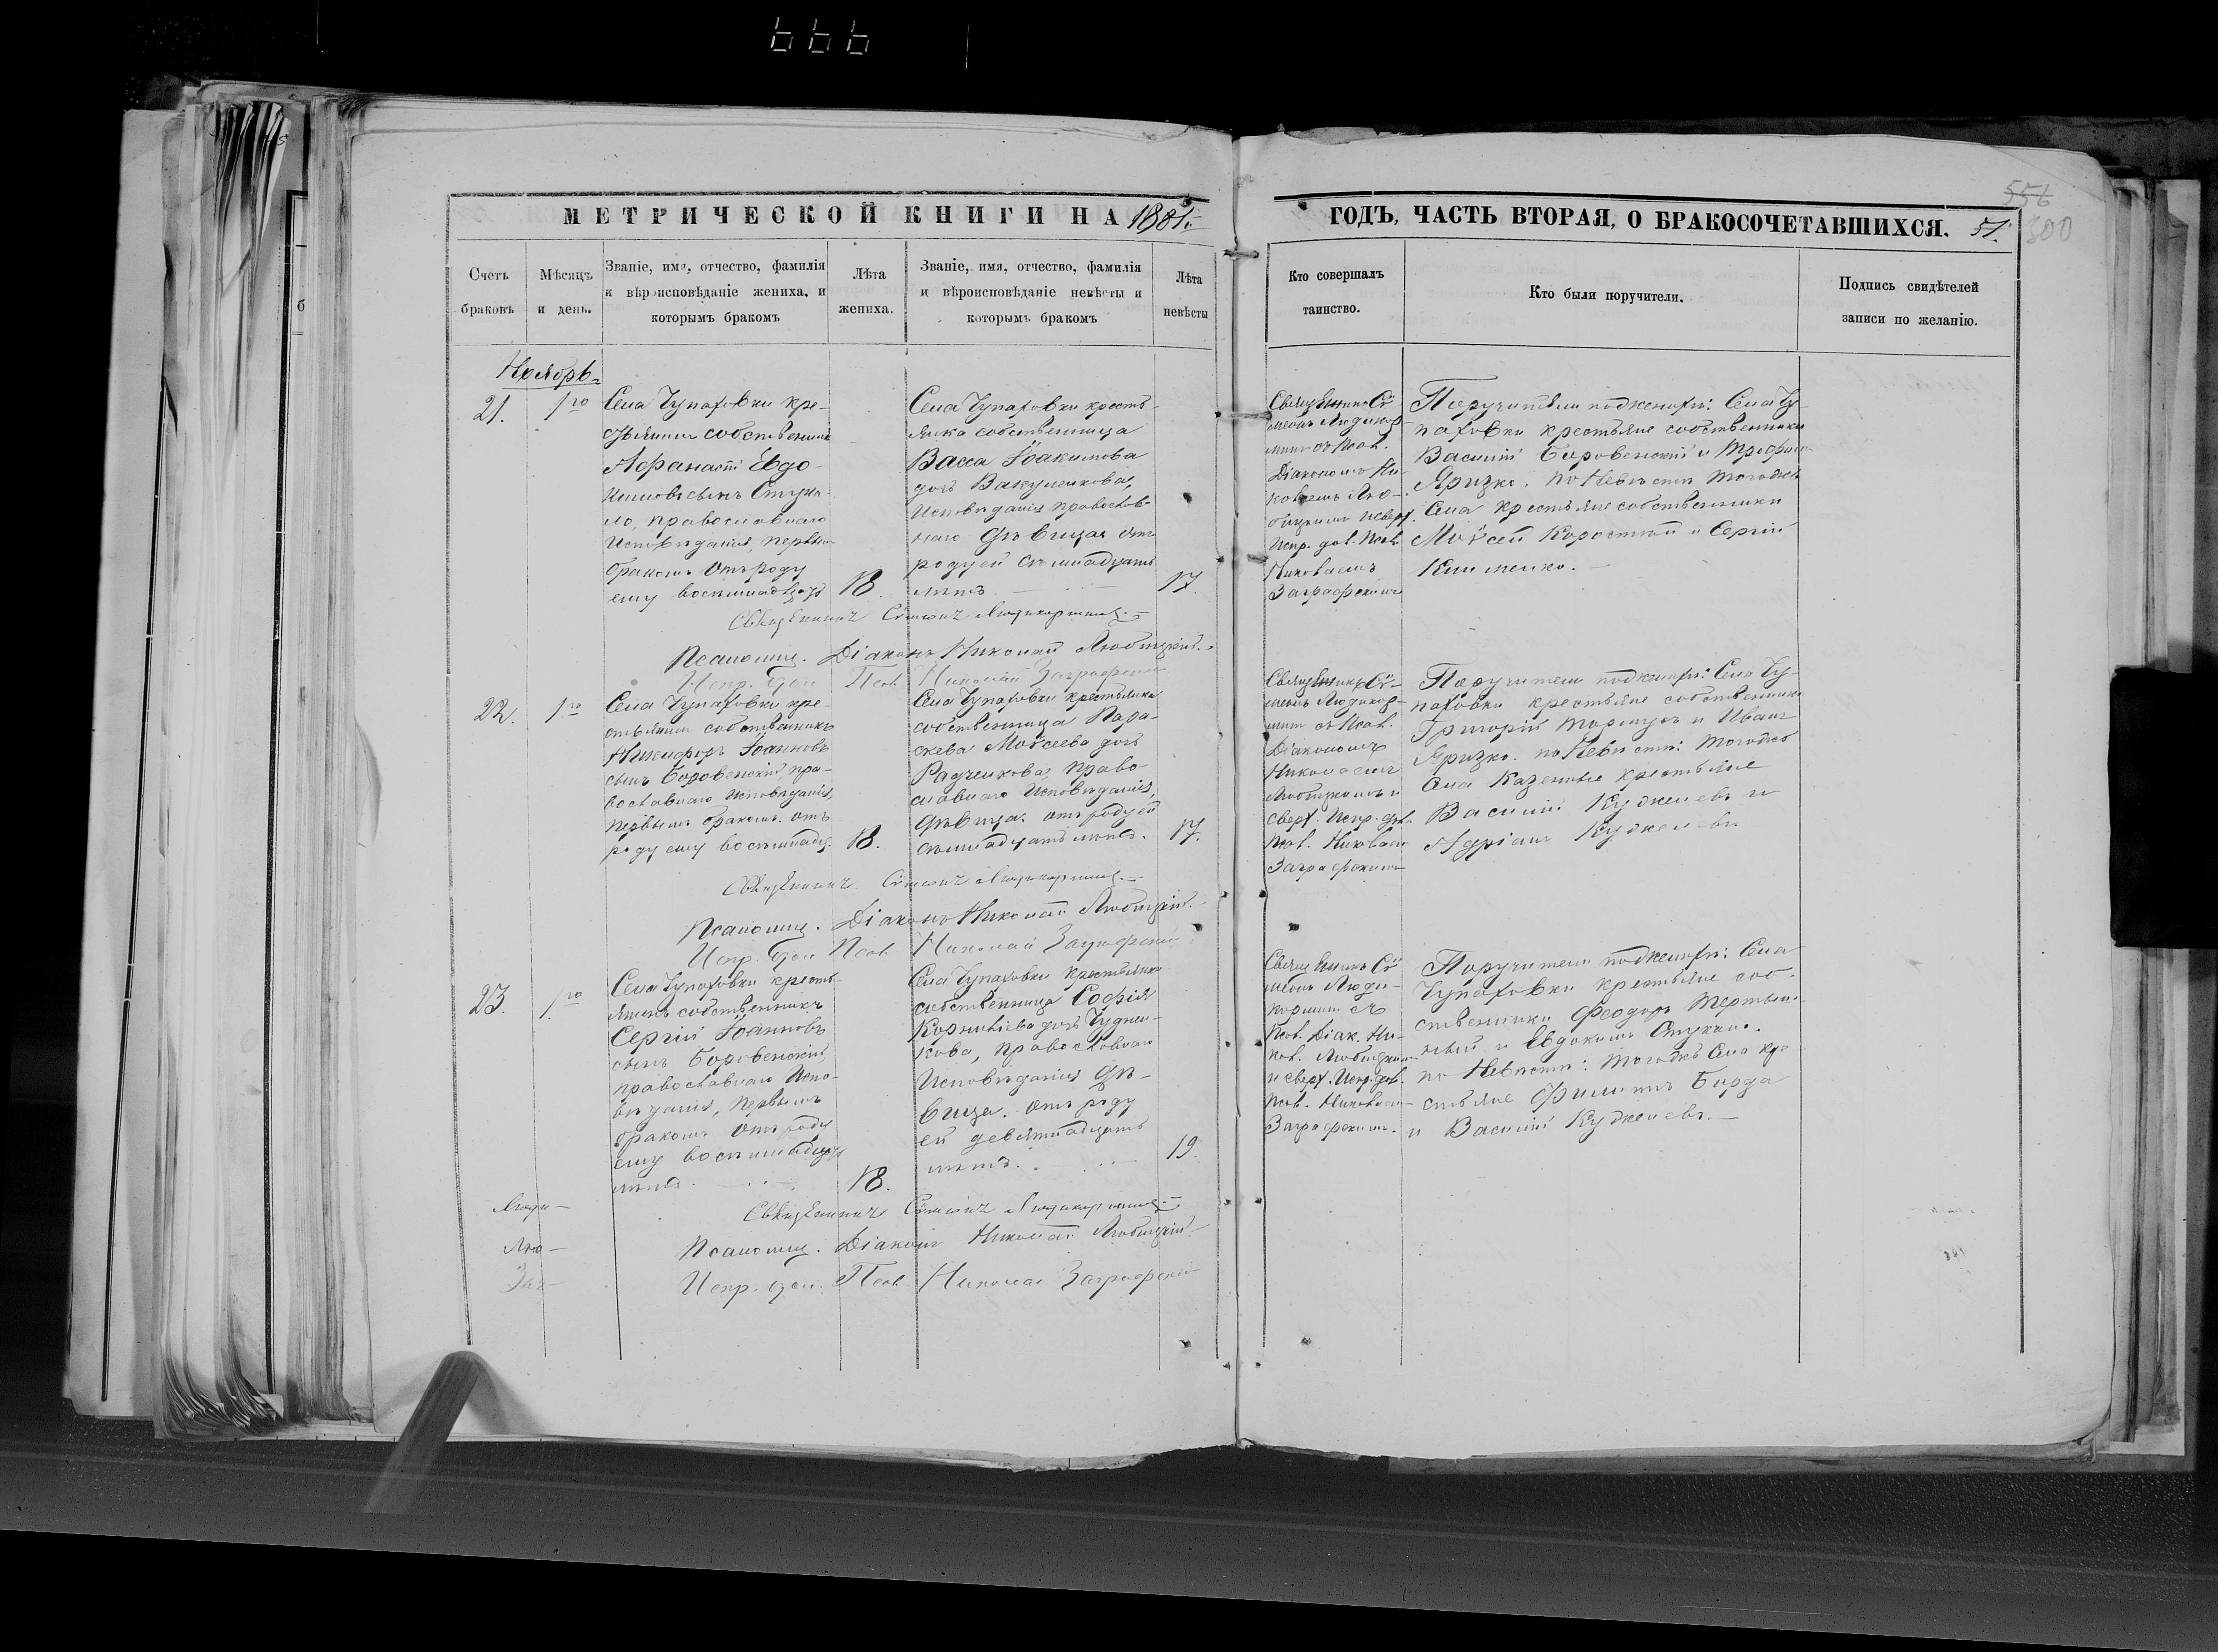 666
МЕТРИЧЕСКОЙ КНИГИ НА 1881
ГОДЪ, ЧАСТЬ ВТОРАЯ, О БРАКОСОЧЕТАВШИХСЯ. 51.
556
300
Счетъ браковъ
Мѣсяцъ и день.
Званіе, имя, отчество, фамилія
и вѣроисповѣданіе жениха, и
которымъ бракомъ
Лѣта
жениха.
Званіе, имя, отчество, фамилія
и вѣроисповѣданіе невѣсты и
которымъ бракомъ
Лѣта
невѣсты
Кто совершалъ
таинство.
Кто были поручители.
Подпись свидѣтелей
записи по желанію.
Ноябрь
21.
1го
Села Чупаховки кре-
стьянинъ собственникъ
Афанасій Евдо-
кимовъ сынъ Стука-
ло, православнаго
Исповѣданія, первымъ
бракомъ. Отъ роду
ему восемнадцать
18.
Села Чупаховки кресть-
янка собственница
Васса Іоакимова
дочь Вакуленкова,
Исповѣданія православ-
наго дѣвица. Отъ
роду ей семнадцать
лѣтъ.
17.
Священникъ Сѵ-
меонъ Людикор-
минъ съ Псал.
Діакономъ Ни-
колаемъ Лю-
бицкимъ и сверх.
Испр. дол. Псал.
Николаемъ
Заграфскимъ
Поручители по женихѣ: Села Чу-
паховки крестьяне собственники
Василій Боровенскій и Трофимъ
Яризко. по Невѣстѣ: тогожъ
Села крестьяне собственники
Моѵсей Коросткій и Сергій
Клименко.
Священникъ Сѵмеонъ Людикорминъ
Псаломщ. Діаконъ Николай Любицкій.
Испр. дол. Псал. Николай Заграфскій
22.
1го
Села Чупаховки кре-
стьянинъ собственникъ
Никифоръ Іоанновъ
сынъ Боровенскій, пра-
вославнаго Исповѣданія,
первымъ бракомъ. отъ
роду ему восемнадц.
18.
Села Чупаховки крестьянка
собственница Пара-
скева Моѵсеева дочь
Радченкова, право-
славнаго Исповѣданія,
дѣвица. отъ роду ей
семнадцать лѣтъ.
17.
Священникъ Сѵ-
меонъ Людикор-
минъ съ Псал.
Діакономъ
Николаемъ
Любицкимъ и
сверх. Испр. дол.
Псал. Николаем
Заграфскимъ
Поручители по женихѣ: Села Чу-
паховки крестьяне собственники
Григорій и Иванъ
Яризко. по Невѣстѣ: тогожъ
Села Казенные крестьяне
Василій Кужелевъ и
Адріанъ Кужелевъ
Священникъ Сѵмеонъ Людикорминъ
Псаломщ. Діаконъ Николай Любицкій.
Испр. дол. Псал. Николай Заграфскій
23.
1го
Села Чупаховки кресть-
янинъ собственникъ
Сергій Іоанновъ
сынъ Боровенскій,
православнаго Испо-
вѣданія, первымъ
бракомъ. Отъ роду
ему восемнадцать
лѣтъ.
18.
Села Чупаховки крестьянка
собственница Софія
Корниліева дочь Чуднен-
кова, православнаго
Исповѣданія дѣ-
вица. отъ роду
ей девятнадцать
лѣтъ.
19.
Священникъ Сѵ-
меонъ Люди-
корминъ съ
Псал. Діак. Ни-
кол. Любицкимъ
и сверх. Испр. дол.
Псал. Николаем
Заграфскимъ.
Поручители по женихѣ: Села
Чупаховки крестьяне соб-
ственники Феодоръ
и Евдокимъ Стукало.
по Невѣстѣ: тогожъ Села кре-
стьяне Филиппъ Борда
и Василій Кужелевъ.
Люди-
Лю-
Заг-
Священникъ Сѵмеонъ Людикорминъ
Псаломщ. Діаконъ Николай Любицкій
Испр. дол. Псал. Николай Заграфскій